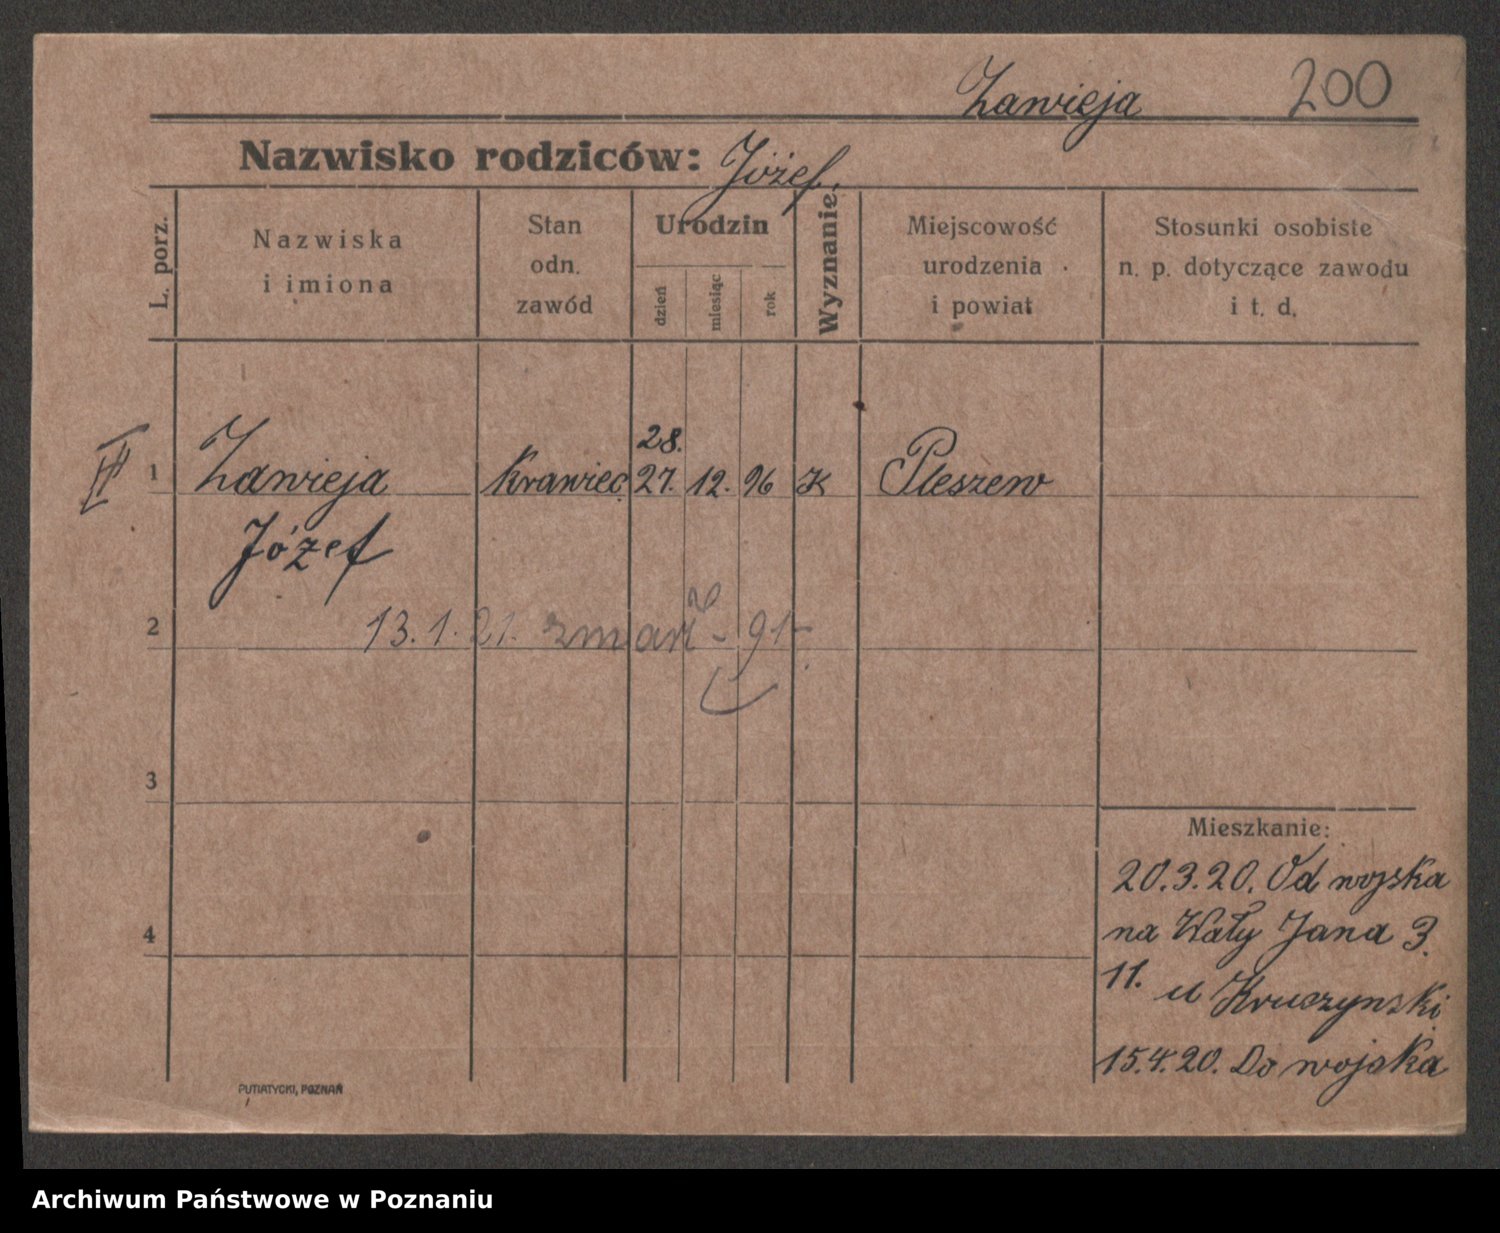 Zawieja 200
Nazwisko rodziców: Józef.
L. porz.
Nazwiska
i imiona
Stan
odn.
zawód
Urodzin
dzień
miesiąc
rok
Wyznanie.
Miejscowość
urodzenia
i powiat
Stosunki osobiste
n. p. dotyczące zawodu
i t. d.
28.
III 1 Zawieja Krawiec 27. 12. 96 K Pleszew
Józef
2 13.1.21. zmarł - 91-
3
4
Mieszkanie:
20.3.20. Od wojska
na Wały Jana 3.
11. u Kruszynski
15.4.20. Do wojska
PUTIATYCKI, POZNAŃ
Archiwum Państwowe w Poznaniu